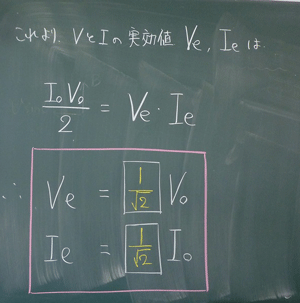 これより、VとIの実効値 Ve, Ieは
I₀V₀/2 = Ve・Ie
∴ Ve = 1/√2 V₀
Ie = 1/√2 I₀